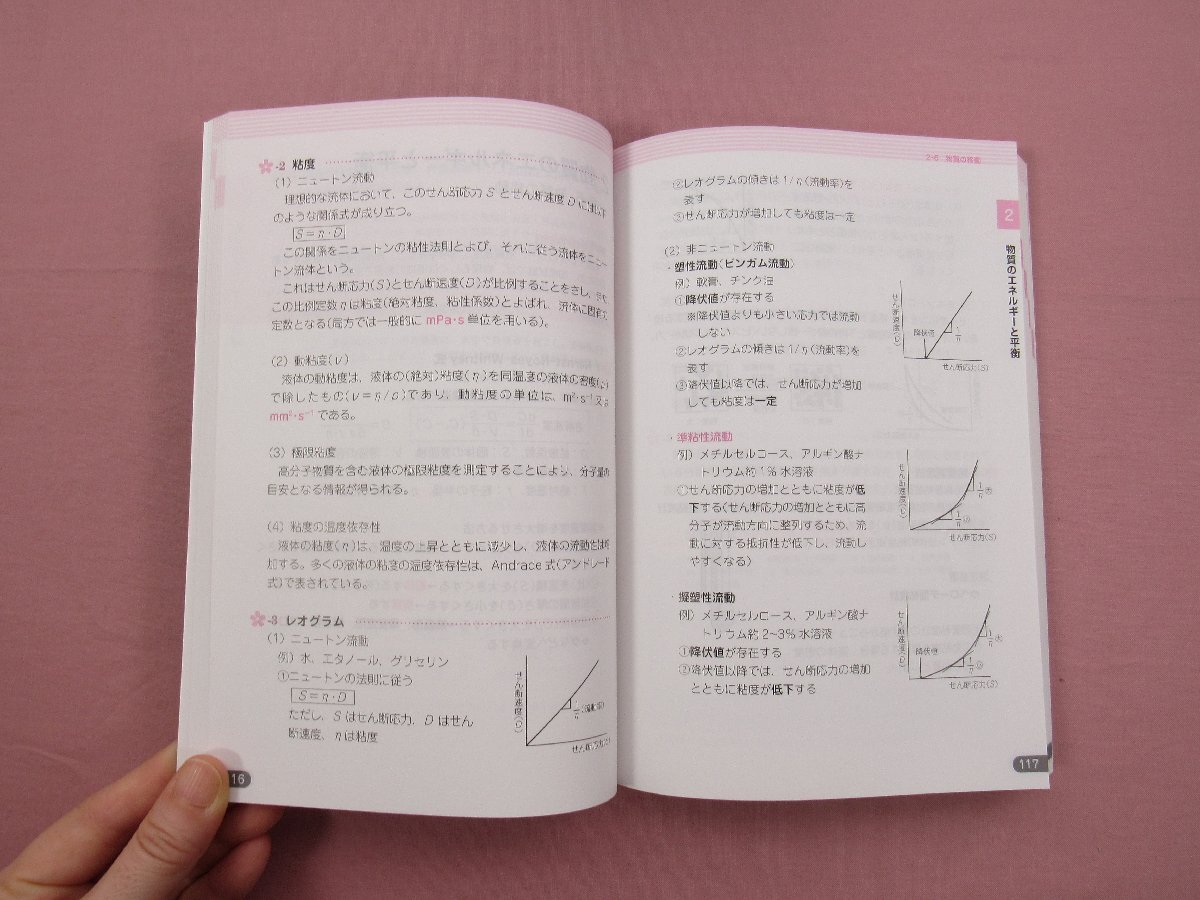 -2 粘度
(1) ニュートン流動
理想的な流体において、このせん断応力 S とせん断速度 D には以下
のような関係式が成り立つ。
S=η・D
この関係をニュートンの粘性法則とよび、それに従う流体をニュー
トン流体という。
これはせん断応力(S)とせん断速度(D)が比例することをさし、
この比例定数 η は粘度(絶対粘度、粘性係数)とよばれ、流体に固有
定数となる(局方では一般的に mPa・s 単位を用いる)。
(2) 動粘度(ν)
液体の動粘度は、液体の(絶対)粘度(η)を同温度の液体の密度(ρ)
で除したもの(ν=η/ρ)であり、動粘度の単位は、m²・s⁻¹ 又は
mm²・s⁻¹ である。
(3) 極限粘度
高分子物質を含む液体の極限粘度を測定することにより、分子量の
目安となる情報が得られる。
(4) 粘度の温度依存性
液体の粘度(η)は、温度の上昇とともに減少し、液体の流動性は増
加する。多くの液体の粘度の温度依存性は、Andrace 式(アンドレード
式)で表されている。
-3 レオグラム
(1) ニュートン流動
例) 水、エタノール、グリセリン
①ニュートンの法則に従う
S=η・D
ただし、S はせん断応力、D はせん
断速度、η は粘度
せん断速度(D)
1/η(流動率)
せん断応力(S)
16
2-5 物質の移動
②レオグラムの傾きは 1/η(流動率)を
表す
③せん断応力が増加しても粘度は一定
(2) 非ニュートン流動
・塑性流動(ビンガム流動)
例) 軟膏、チンク油
①降伏値が存在する
※降伏値よりも小さい応力では流動
しない
②レオグラムの傾きは 1/η(流動率)を
表す
③降伏値以降では、せん断応力が増加
しても粘度は一定
せん断速度(D)
降伏値
1/η
せん断応力(S)
・準粘性流動
例) メチルセルロース、アルギン酸ナ
トリウム約 1% 水溶液
①せん断応力の増加とともに粘度が低
下する(せん断応力の増加とともに高
分子が流動方向に整列するため、流
動に対する抵抗性が低下し、流動し
やすくなる)
せん断速度(D)
1/η 大
1/η 小
せん断応力(S)
・擬塑性流動
例) メチルセルロース、アルギン酸ナ
トリウム約 2~3% 水溶液
①降伏値が存在する
②降伏値以降では、せん断応力の増加
とともに粘度が低下する
せん断速度(D)
降伏値
1/η 大
1/η 小
せん断応力(S)
2
物質のエネルギーと平衡
117